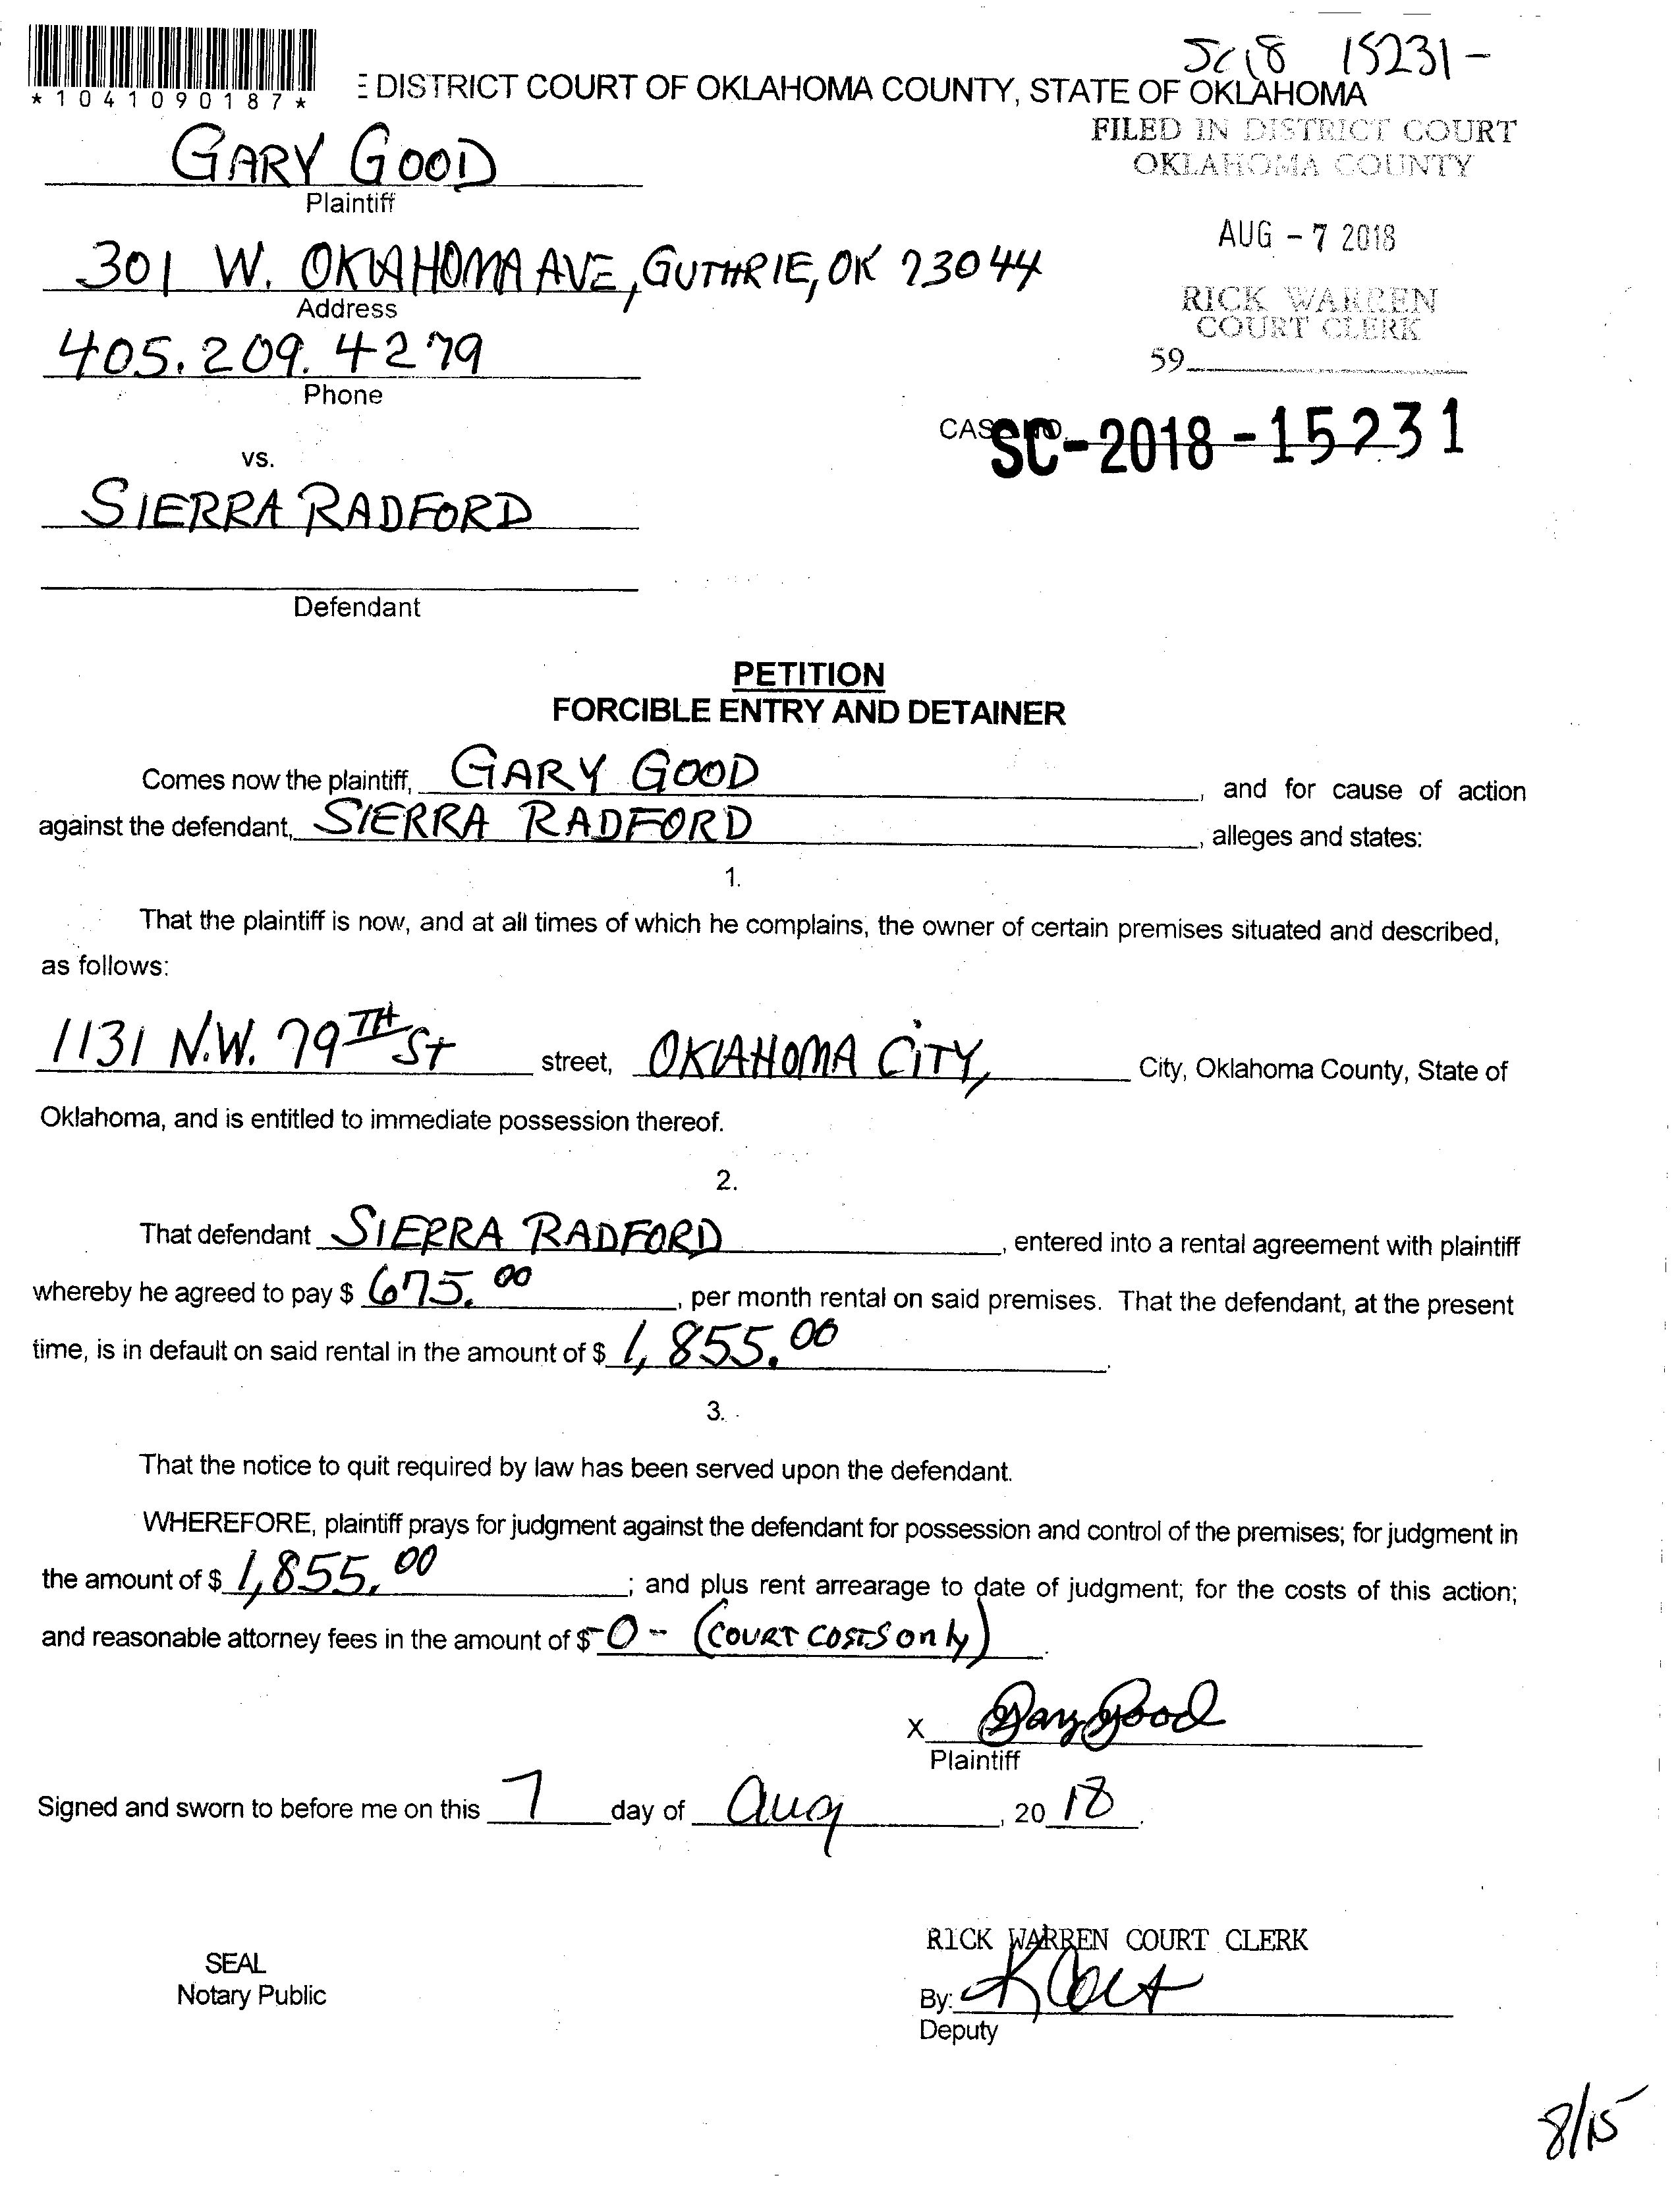 SC18 15231-
*1041090187*
E DISTRICT COURT OF OKLAHOMA COUNTY, STATE OF OKLAHOMA
FILED IN DISTRICT COURT
OKLAHOMA COUNTY
GARY GOOD
Plaintiff
AUG - 7 2018
301 W. OKLAHOMA AVE, GUTHRIE, OK 73044
Address
RICK WARREN
COURT CLERK
405.209.4279
Phone
59
CASE NO. SC-2018-15231
vs.
SIERRA RADFORD
Defendant
PETITION
FORCIBLE ENTRY AND DETAINER
Comes now the plaintiff, GARY GOOD, and for cause of action
against the defendant, SIERRA RADFORD, alleges and states:
1.
That the plaintiff is now, and at all times of which he complains, the owner of certain premises situated and described,
as follows:
1131 N.W. 79TH ST street, OKLAHOMA CITY, City, Oklahoma County, State of
Oklahoma, and is entitled to immediate possession thereof.
2.
That defendant SIERRA RADFORD, entered into a rental agreement with plaintiff
whereby he agreed to pay $ 675.00, per month rental on said premises. That the defendant, at the present
time, is in default on said rental in the amount of $ 1,855.00.
3.
That the notice to quit required by law has been served upon the defendant.
WHEREFORE, plaintiff prays for judgment against the defendant for possession and control of the premises; for judgment in
the amount of $ 1,855.00; and plus rent arrearage to date of judgment; for the costs of this action;
and reasonable attorney fees in the amount of $ -0- (COURT COSTS only).
X Gary Good
Plaintiff
Signed and sworn to before me on this 7 day of Aug, 20 18.
RICK WARREN COURT CLERK
SEAL
Notary Public
By:
Deputy
8/15